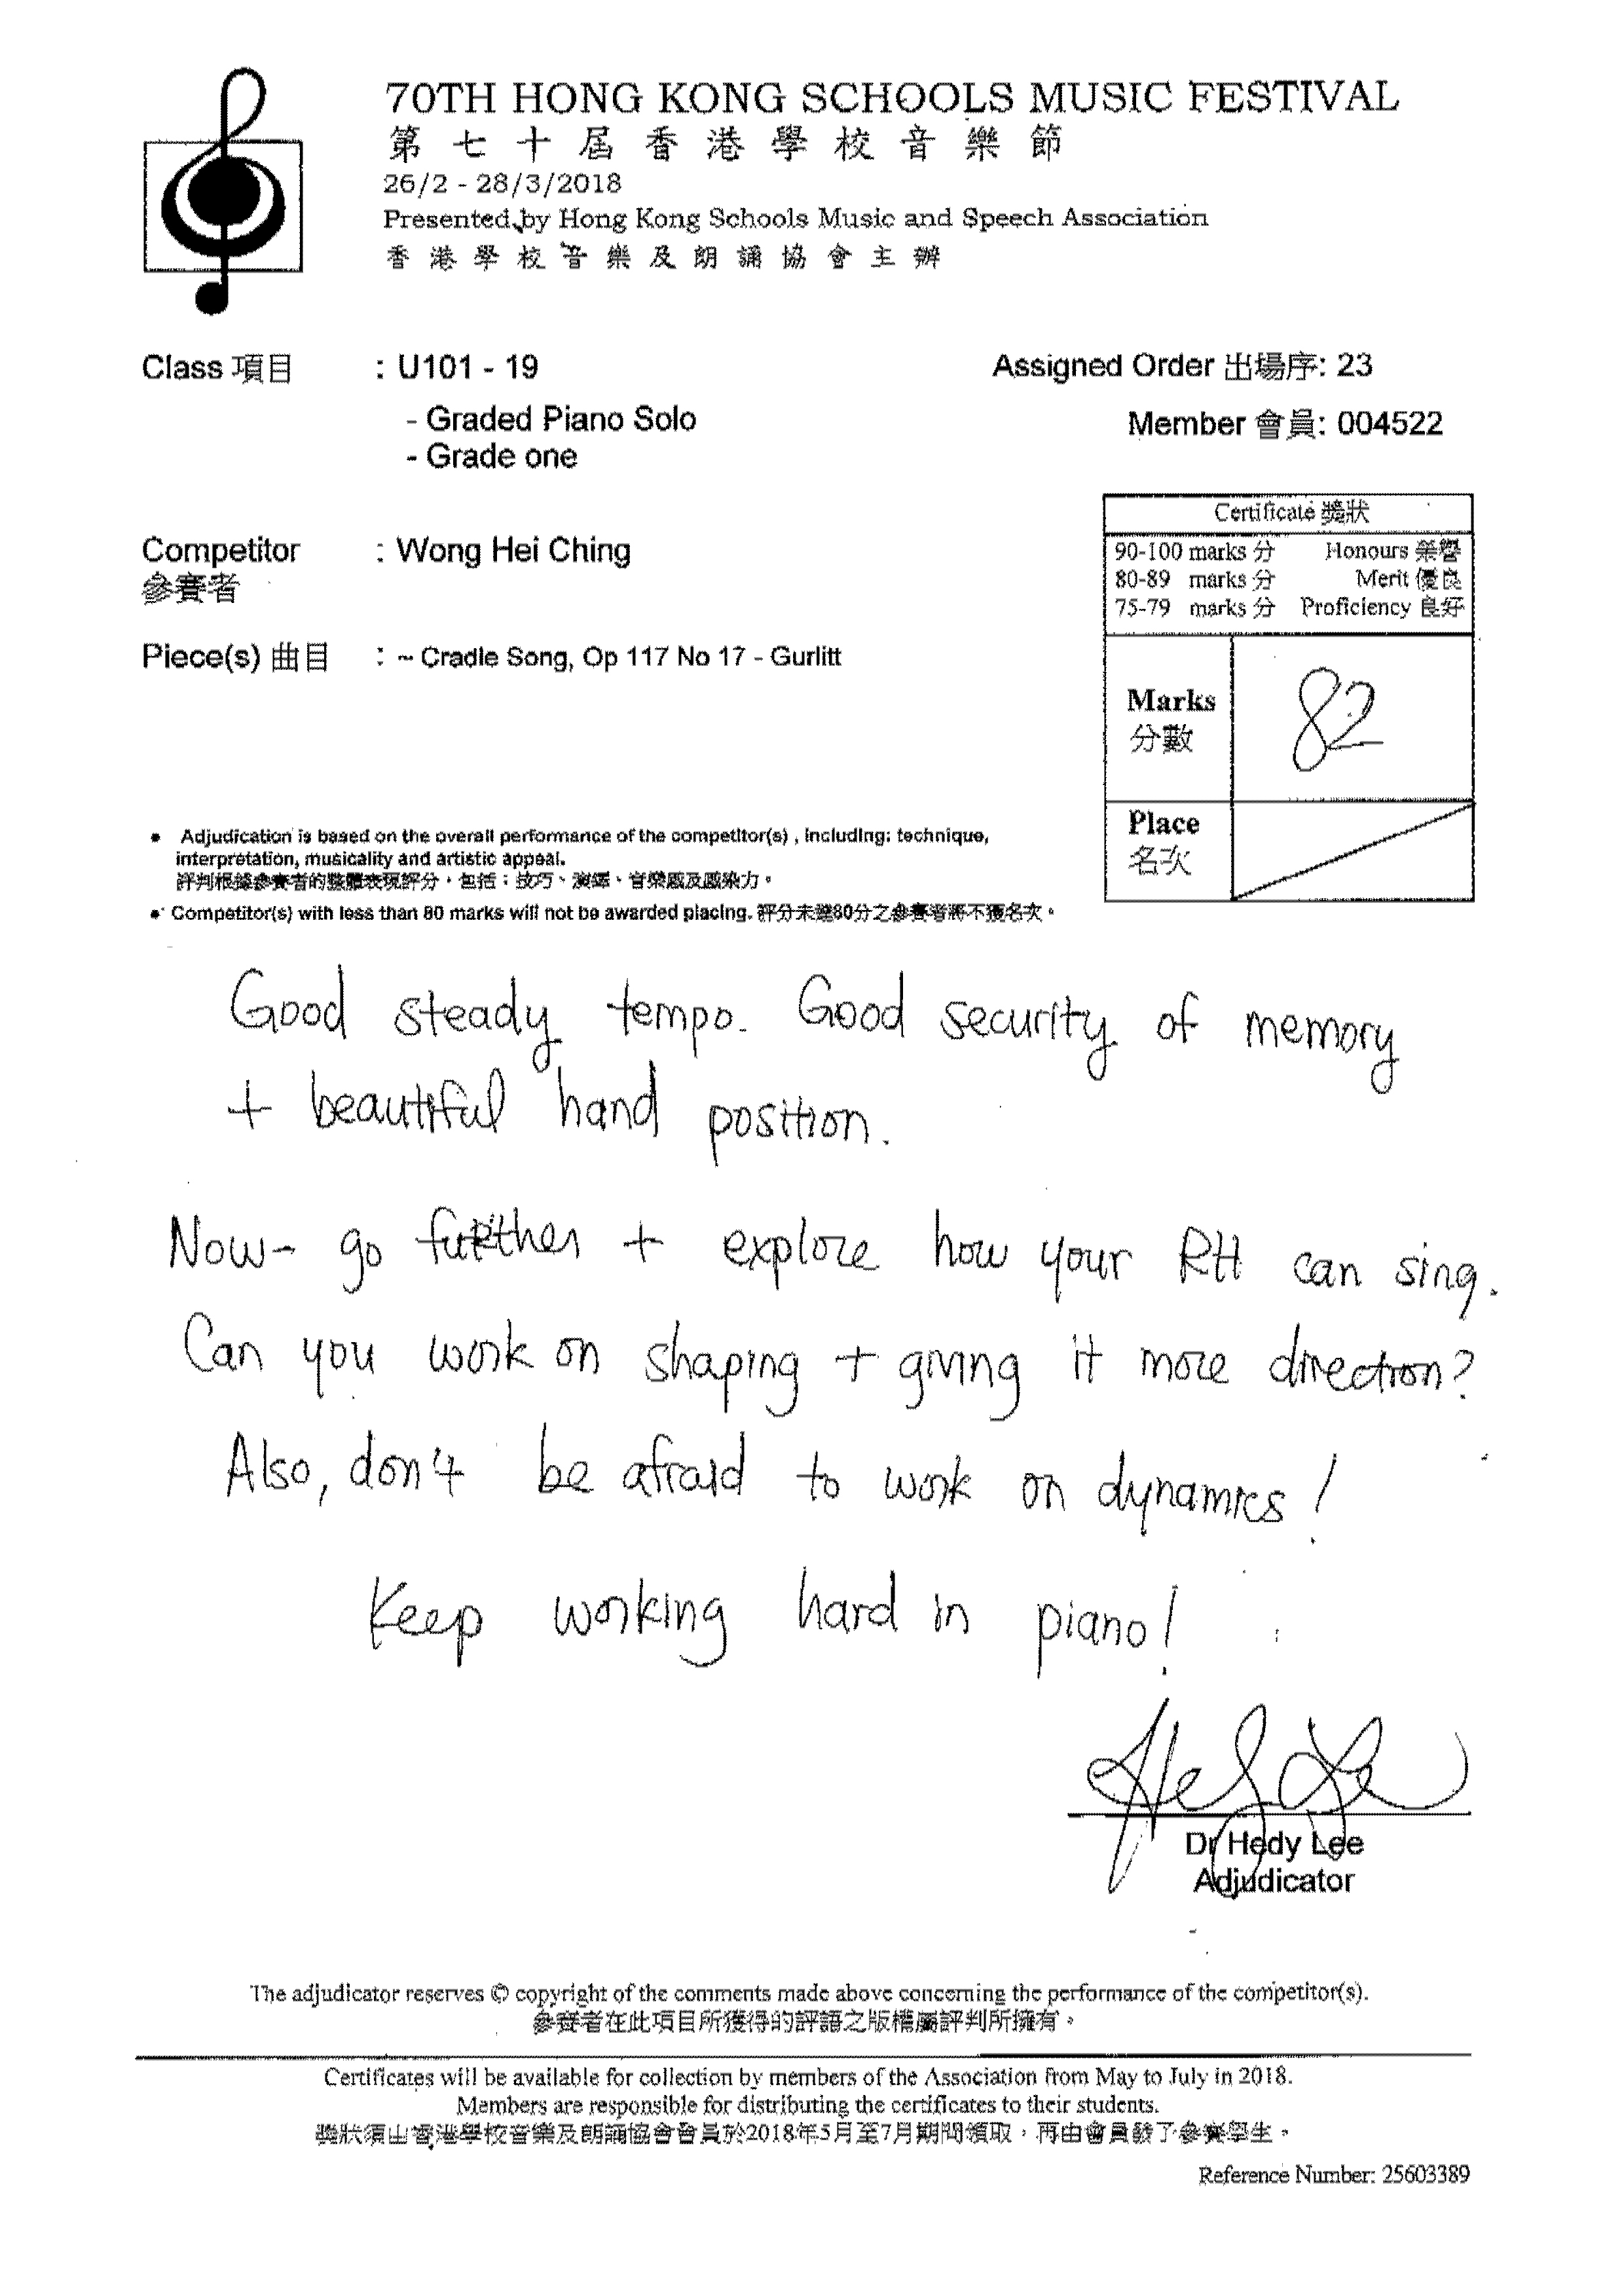 70TH HONG KONG SCHOOLS MUSIC FESTIVAL
第七十屆香港學校音樂節
26/2 - 28/3/2018
Presented by Hong Kong Schools Music and Speech Association
香港學校音樂及朗誦協會主辦
Class 項目 : U101 - 19
Assigned Order 出場序: 23
- Graded Piano Solo
Member 會員: 004522
- Grade one
Certificate 獎狀
90-100 marks 分 Honours 榮譽
80-89 marks 分 Merit 優良
75-79 marks 分 Proficiency 良好
Competitor : Wong Hei Ching
參賽者
Piece(s) 曲目 : ~ Cradle Song, Op 117 No 17 - Gurlitt
Marks 82
分數
Place
名次
• Adjudication is based on the overall performance of the competitor(s) , including: technique,
interpretation, musicality and artistic appeal.
評判根據參賽者的整體表現評分，包括：技巧、演繹、音樂感及感染力。
• Competitor(s) with less than 80 marks will not be awarded placing. 評分未達80分之參賽者將不獲名次。
Good steady tempo. Good security of memory
+ beautiful hand position.
Now- go further + explore how your RH can sing.
Can you work on shaping + giving it more direction?
Also, don't be afraid to work on dynamics!
Keep working hard in piano!
Dr Hedy Lee
Adjudicator
The adjudicator reserves © copyright of the comments made above concerning the performance of the competitor(s).
參賽者在此項目所獲得的評語之版權屬評判所擁有。
Certificates will be available for collection by members of the Association from May to July in 2018.
Members are responsible for distributing the certificates to their students.
獎狀須由香港學校音樂及朗誦協會會員於2018年5月至7月期間領取，再由會員發予參賽學生。
Reference Number: 25603389